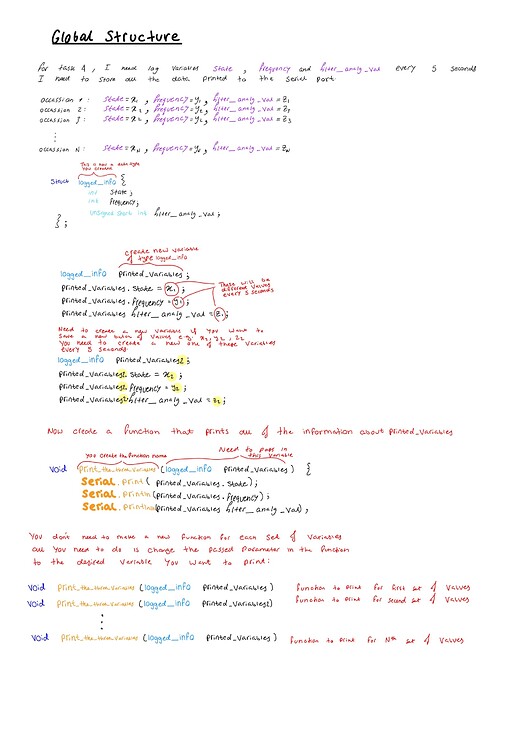 Global Structure
For task A, I need log variables state, frequency and filter_analg_val every 5 seconds
I need to store all the data printed to the serial port
occassion 1: state = x₁, frequency = y₁, filter_analg_val = z₁
occassion 2: state = x₂, frequency = y₂, filter_analg_val = z₂
occassion 3: state = x₃, frequency = y₃, filter_analg_val = z₃
⋮
occassion N: state = xN, frequency = yN, filter_analg_val = zN
This is now a data type
you created
Struct logged_info {
int state;
int frequency;
unsigned short int filter_analg_val;
};
create new variable
of type logged_info
logged_info printed_variables;
printed_variables.state = x₁;
These will be
different values
every 5 seconds
printed_variables.frequency = y₁;
printed_variables filter_analg_val = z₁;
Need to create a new variable if you want to
save a new batch of values e.g. x₂, y₂, z₂
You need to create a new one of these variables
every 5 seconds.
logged_info printed_variables2;
printed_variables2.state = x₂;
printed_variables2.frequency = y₂;
printed_variables2 filter_analg_val = z₂;
Now create a function that prints all of the information about printed_variables
Need to pass in
this variable
you create the function name
void print_the_three_variables (logged_info printed_variables) {
Serial.print( printed_variables.state);
Serial.println( printed_variables.frequency);
Serial.println(printed_variables filter_analg_val),
You don't need to make a new function for each set of variables
all you need to do is change the passed parameter in the function
to the desired variable you want to print:
void print_the_three_variables (logged_info printed_variables) function to print for first set of values
void print_the_three_variables (logged_info printed_variables2) function to print for second set of values
⋮
void print_the_three_variables (logged_info printed_variables) function to print for Nth set of values